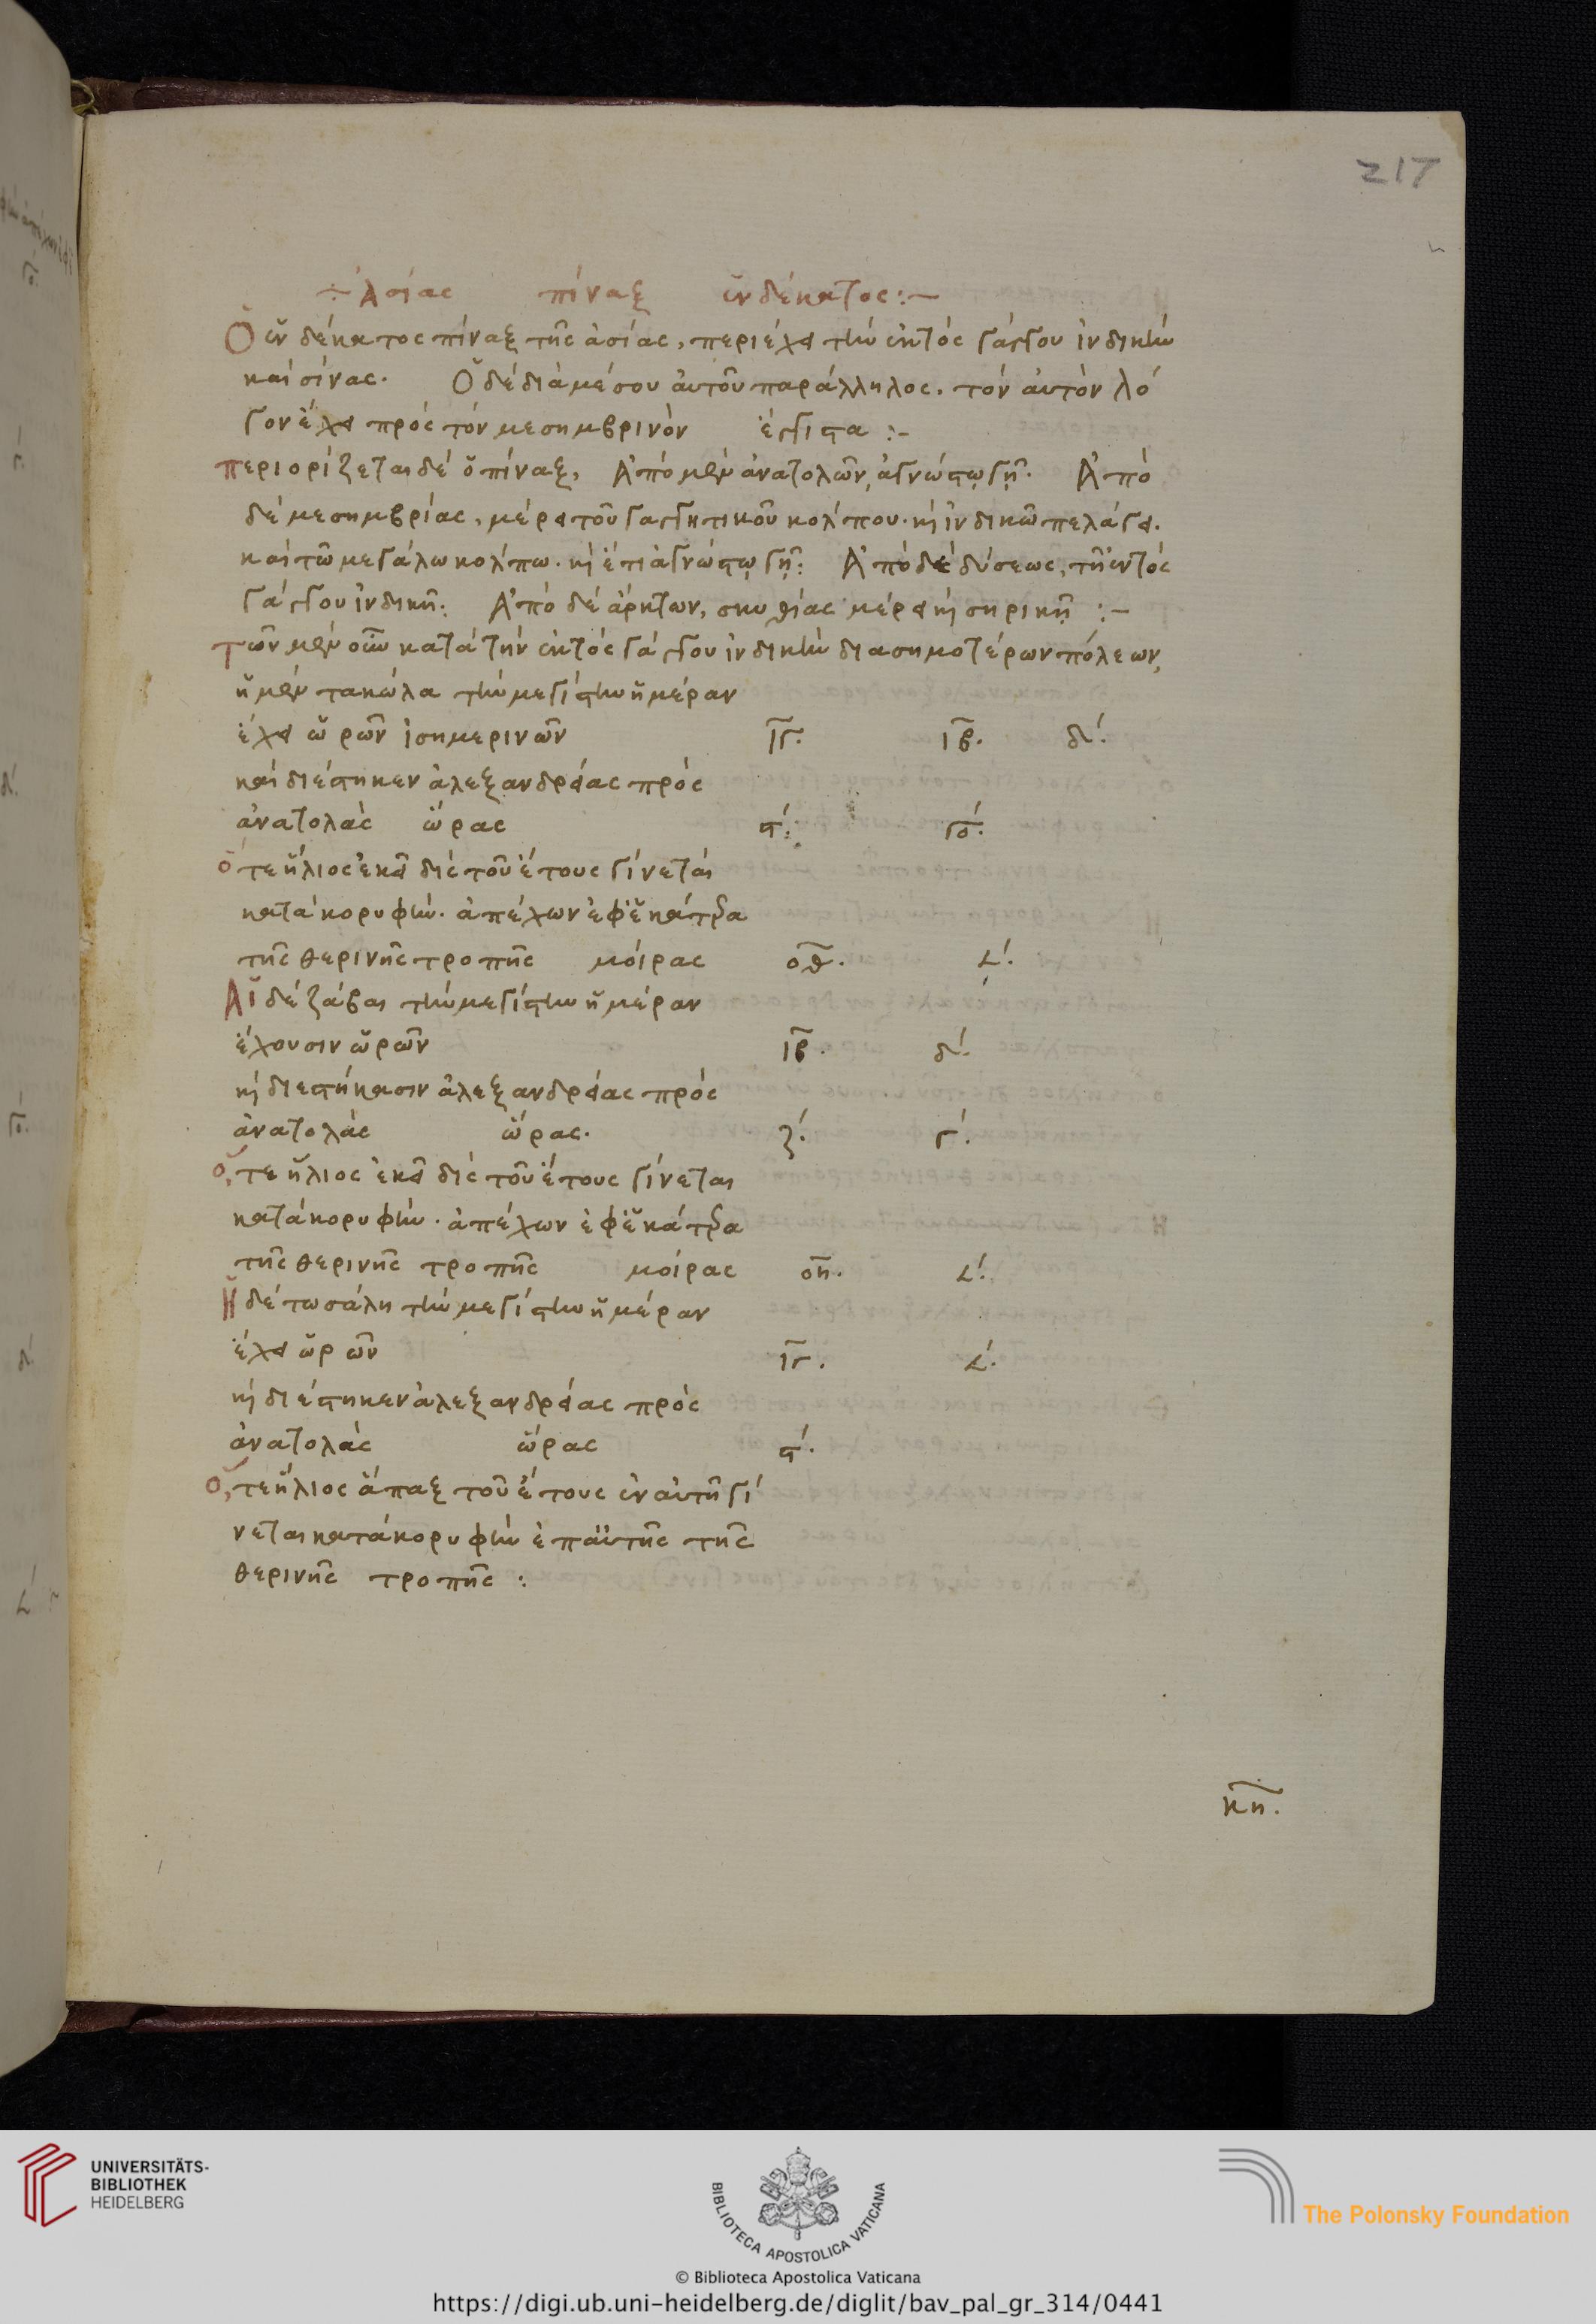 217
÷ Ἀσίας πίναξ ἑνδέκατος :—
Ὁ ἑνδέκατος πίναξ τῆς ἀσίας, περιέχει τὴν ἐκτὸς γάγγου ἰνδικὴν
καὶ σίνας. Ὁ δὲ διὰ μέσου αὐτοῦ παράλληλος. τὸν αὐτὸν λό
γον ἔχει πρὸς τὸν μεσημβρινὸν ἔγγιστα :–
περιορίζεται δὲ ὁ πίναξ, Ἀπὸ μὲν ἀνατολῶν, ἀγνώστῳ γῇ. Ἀπὸ
δὲ μεσημβρίας, μέρει τοῦ γαγγητικοῦ κολπου. κὶ ἰνδικῶ πελάγει.
καὶ τῶ μεγάλω κολπω. κὶ ἔτι ἀγνώστῳ γῇ: Ἀπὸ δὲ δύσεως, τῆ ἐντὸς
γάγγου ἰνδικῆ: Ἀπὸ δὲ ἄρκτων, σκυθίας μέρει κὶ σηρικῇ :–
τῶν μὲν οὖν κατὰ τὴν ἐκτὸς γάγγου ἰνδικὴν διασημοτέρων πόλεων,
ἡ μὲν τακώλα τὴν μεγίστην ἡμέραν
ἔχει ὡρῶν ἰσημερινῶν ιγ. ιβ. δ΄.
καὶ διέστηκεν ἀλεξανδρείας πρὸς
ἀνατολὰς ὥρας ϛ΄: γο΄.
ὅ τε ἥλιος ἐκεῖ δὶς τοῦ ἔτους γίνεται
κατὰ κορυφήν. ἀπέχων ἐφ' ἑκάτερα
τῆς θερινῆς τροπῆς μοίρας οθ. ∠΄.
Αἱ δὲ ζάβαι τὴν μεγίστην ἡμέραν
ἔχουσιν ὡρῶν ιβ. δ΄.
κὶ διεστήκασιν ἀλεξανδρείας πρὸς
ἀνατολάς ὥρας. ζ΄. γ΄.
ὅ, τε ἥλιος ἐκεῖ δὶς τοῦ ἔτους γίνεται
κατὰ κορυφήν. ἀπέχων ἐφ' ἑκάτερα
τῆς θερινῆς τροπῆς μοίρας οη. ∠΄.
Ἡ δὲ τωσάλη τὴν μεγίστην ἡμέραν
ἔχει ὡρῶν ιγ. ∠΄.
κὶ διέστηκεν ἀλεξανδρείας πρὸς
ἀνατολὰς ὥρας ϛ΄.
ὅ, τε ἥλιος ἅπαξ τοῦ ἔτους ἐν αὐτῆ γί
νεται κατὰ κορυφὴν ἐπ' αὐτῆς τῆς
θερινῆς τροπῆς :
κη.
UNIVERSITÄTS-
BIBLIOTHEK
HEIDELBERG
BIBLIOTECA APOSTOLICA VATICANA
The Polonsky Foundation
© Biblioteca Apostolica Vaticana
https://digi.ub.uni-heidelberg.de/diglit/bav_pal_gr_314/0441